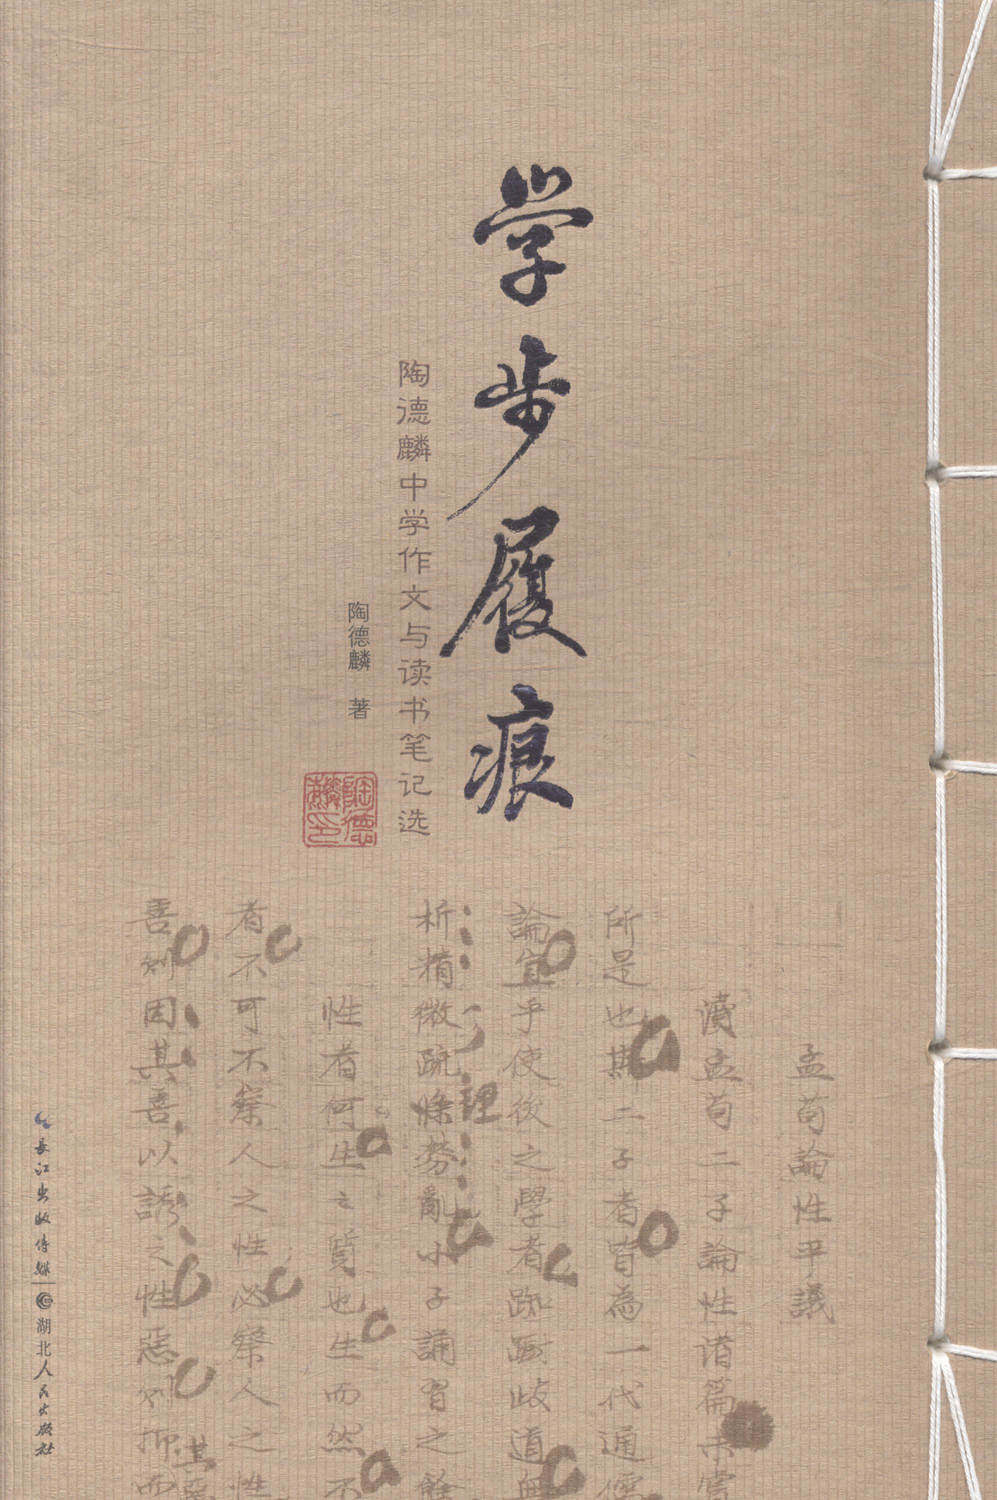 学步履痕
陶德麟中学作文与读书笔记选
陶德麟 著
陶德麟印
孟荀論性平議
讀孟荀二子論性諸篇未嘗
所是也斯二子者皆為一代通儒
論宜乎使後之學者踟躕歧道無
析精微疏條棼亂小子誦習之餘
理
性者何生之質也生而然不
者不可不察人之性必察人之性
善則因其善以誘之性惡則抑而
其惡
長江出版傳媒
湖北人民出版社